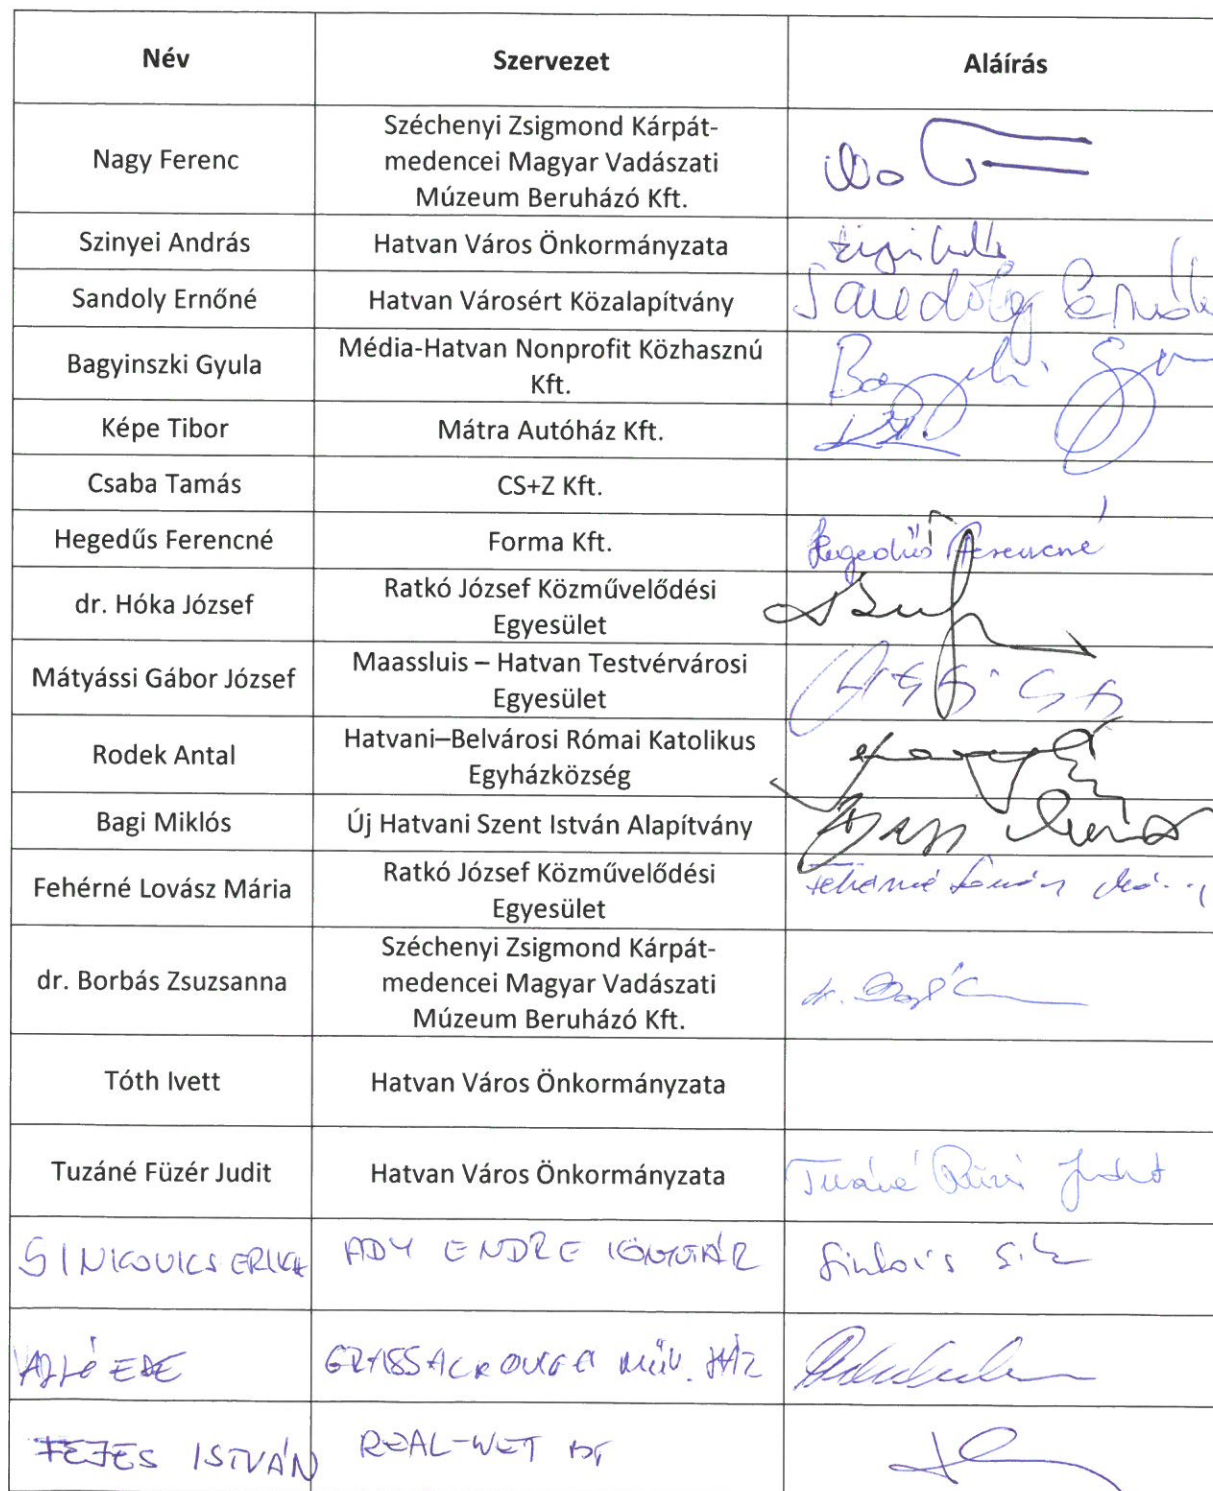 Név Szervezet Aláírás
Nagy Ferenc
Széchenyi Zsigmond Kárpát-
medencei Magyar Vadászati
Múzeum Beruházó Kft.
Szinyei András Hatvan Város Önkormányzata
Sandoly Ernőné Hatvan Városért Közalapítvány Sandoly Ernőné
Bagyinszki Gyula
Média-Hatvan Nonprofit Közhasznú
Kft.
Képe Tibor Mátra Autóház Kft.
Csaba Tamás CS+Z Kft.
Hegedűs Ferencné Forma Kft. Hegedűs Ferencné
dr. Hóka József
Ratkó József Közművelődési
Egyesület
Mátyássi Gábor József
Maassluis – Hatvan Testvérvárosi
Egyesület
Rodek Antal
Hatvani–Belvárosi Római Katolikus
Egyházközség
Bagi Miklós Új Hatvani Szent István Alapítvány
Fehérné Lovász Mária
Ratkó József Közművelődési
Egyesület
Fehérné Lovász
dr. Borbás Zsuzsanna
Széchenyi Zsigmond Kárpát-
medencei Magyar Vadászati
Múzeum Beruházó Kft.
dr.
Tóth Ivett Hatvan Város Önkormányzata
Tuzáné Füzér Judit Hatvan Város Önkormányzata Tuzáné Füzér Judit
SINKOVICS ERIKA ADY ENDRE KÖNYVTÁR Sinkovics
EDE MŰV. HÁZ
FEJES ISTVÁN REAL-WET